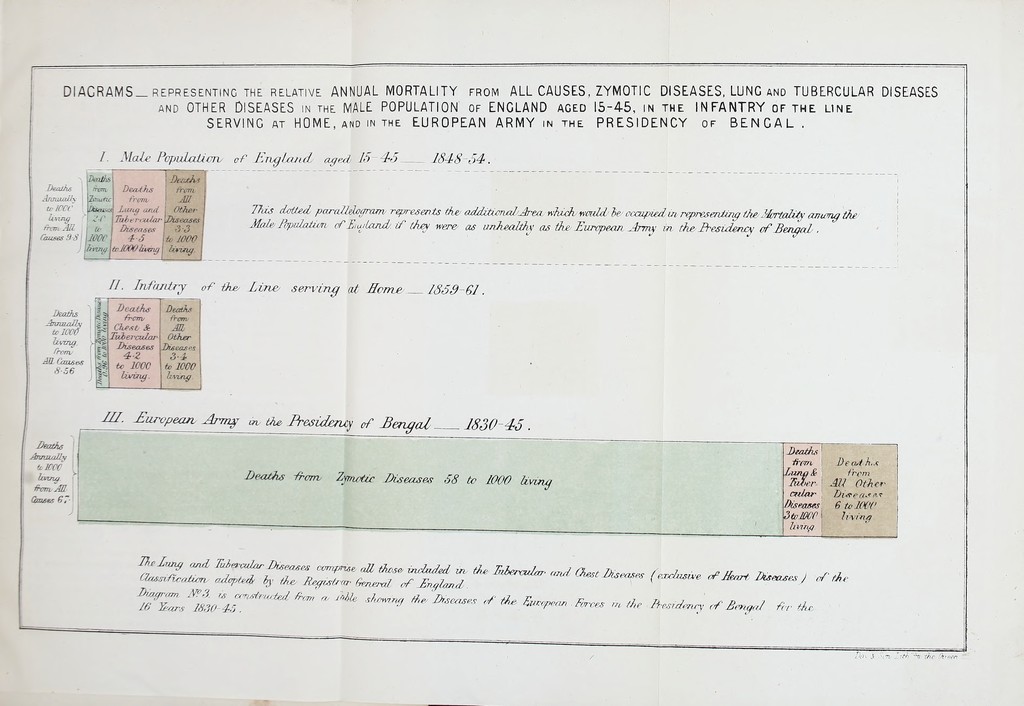 DIAGRAMS_ REPRESENTING THE RELATIVE ANNUAL MORTALITY FROM ALL CAUSES, ZYMOTIC DISEASES, LUNG AND TUBERCULAR DISEASES
AND OTHER DISEASES IN THE MALE POPULATION OF ENGLAND AGED 15-45, IN THE INFANTRY OF THE LINE
SERVING AT HOME, AND IN THE EUROPEAN ARMY IN THE PRESIDENCY OF BENGAL.
I. Male Population of England aged 15-45 __ 1848-54.
Deaths
Annually
to 1000
living
from All
Causes 9·8
Deaths
from
Zymotic
Diseases
2·0
to
1000
living
Deaths
from
Lung and
Tubercular
Diseases
4·5
to 1000 living
Deaths
from
All
Other
Diseases
3·3
to 1000
living.
This dotted parallelogram represents the additional Area which would be occupied in representing the Mortality among the
Male Population of England if they were as unhealthy as the European Army in the Presidency of Bengal.
II. Infantry of the Line serving at Home __ 1859-61.
Deaths
Annually
to 1000
living
from
All Causes
8·56
Deaths from Zymotic Diseases
0·96 to 1000 living
Deaths
from
Chest &
Tubercular
Diseases
4·2
to 1000
living.
Deaths
from
All
Other
Diseases
3·4
to 1000
living.
III. European Army in the Presidency of Bengal __ 1830-45.
Deaths
Annually
to 1000
living
from All
Causes 67
Deaths from Zymotic Diseases 58 to 1000 living
Deaths
from
Lung &
Tuber
cular
Diseases
3 to 1000
living
Deaths
from
All Other
Diseases
6 to 1000
living
The Lung and Tubercular Diseases comprise all those included in the Tubercular and Chest Diseases (exclusive of Heart Diseases) of the
Classification adopted by the Registrar General of England
Diagram No. 3 is constructed from a table showing the Diseases of the European Forces in the Presidency of Bengal for the
16 Years 1830-45.